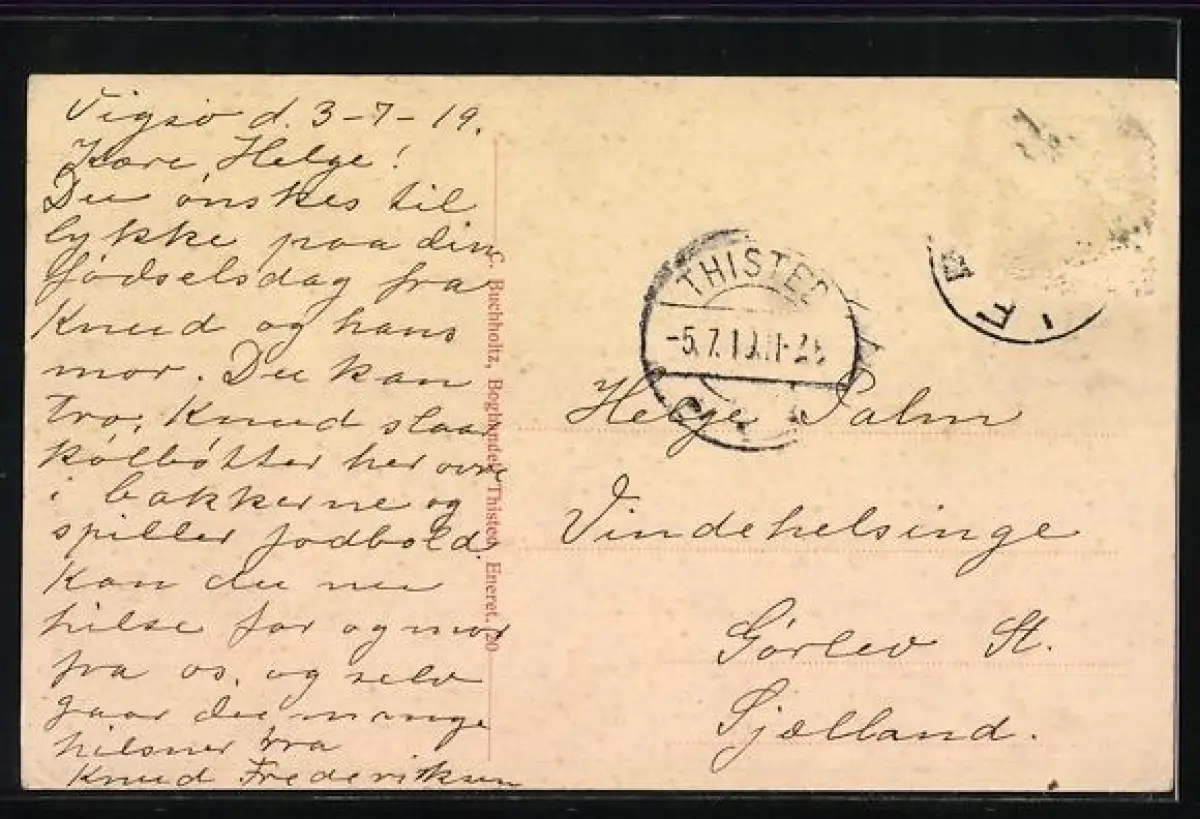 Vigsø d. 3-7-19.
Kære Helge!
Du ønskes til
lykke paa din
fødselsdag fra
Knud og hans
mor. Du kan
tro, Knud slaar
kolbøtter her ovre
i bakkerne og
spiller fodbold.
Kan du nu
hilse far og mor
fra os, og selv
faar du mange
hilsner fra
Knud Frederiksen
C. Buchholtz, Boghandel, Thisted. Eneret. 20
THISTED
-5.7.19.11-
Helge Palm
Vindehelsinge
Gørlev St.
Sjælland.